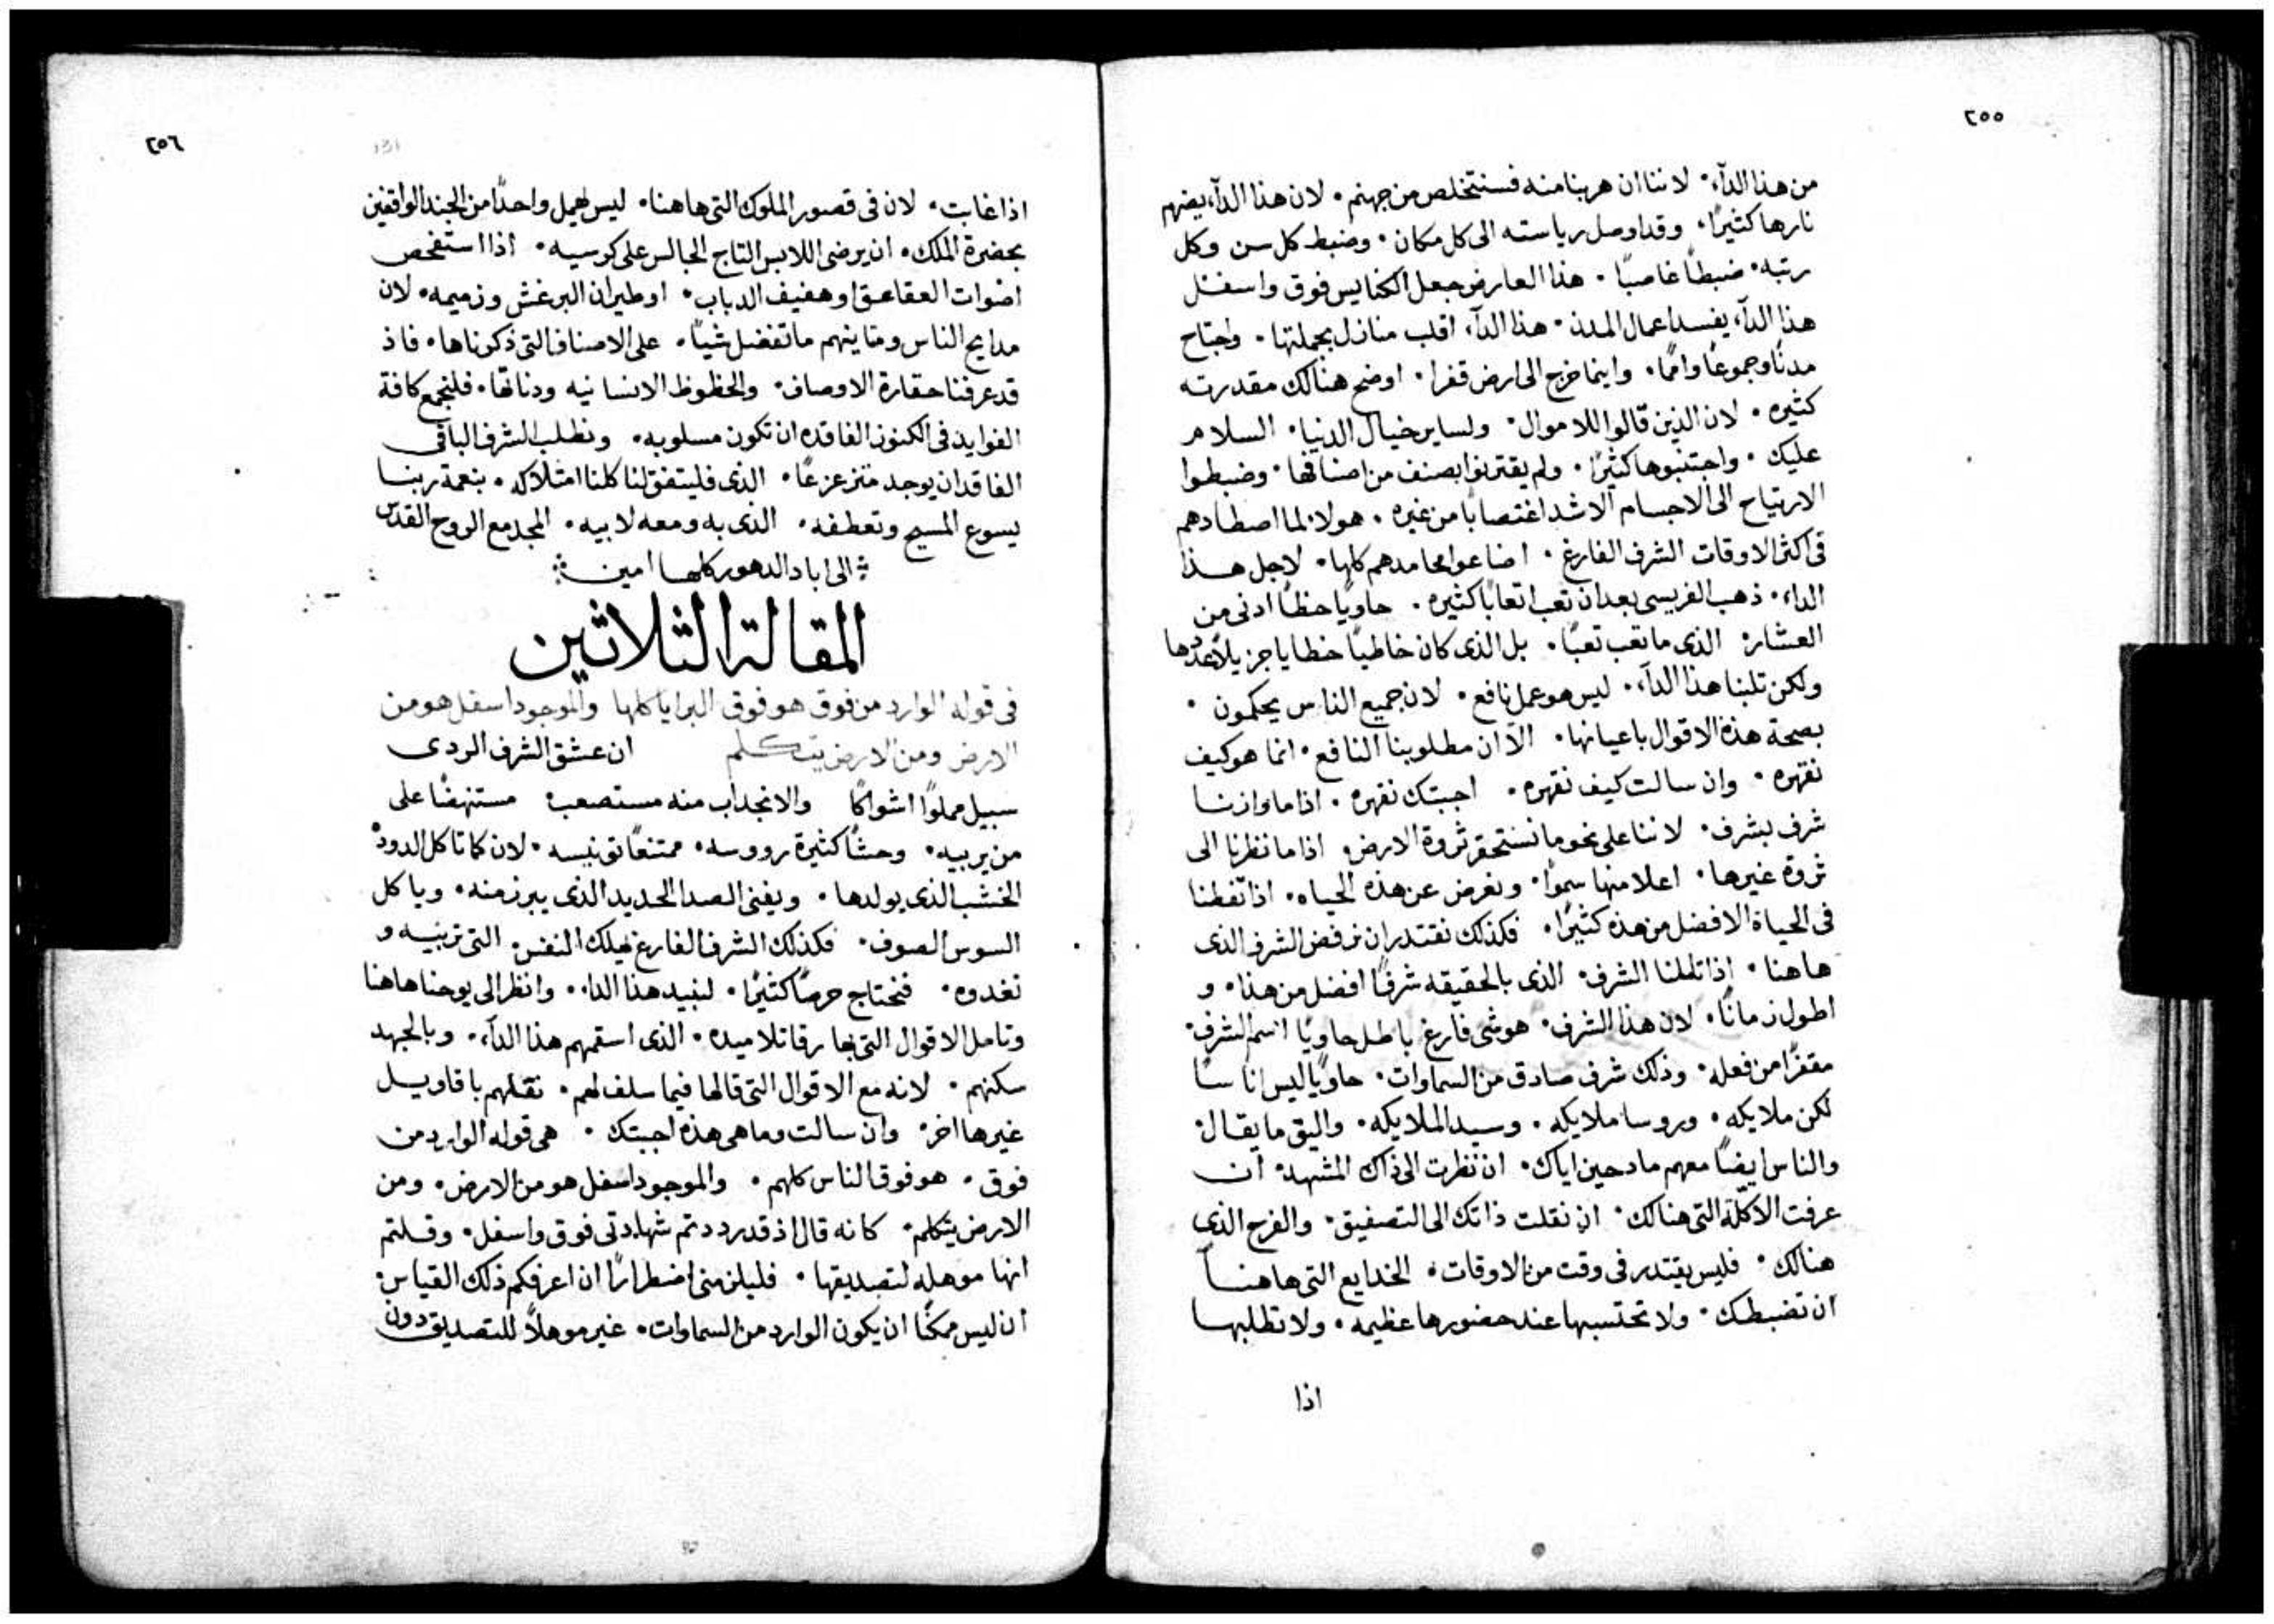 ٢٥٥
من هذا الدآء٠ لاننا ان هربنا منه فسنتخلص من جهنم٠ لان هذا الدآء يضرم
نارها كثيرًا٠ وقد اوصل رياسته الى كل مكان٠ وضبط كل سن وكل
رتبه٠ ضبطًا غاصبًا٠ هذا العارض جعل الكنايس فوق واسفل
هذا الدآء يفسد اعمال المدن٠ هذا الدآء اقلب منازل بجملتها٠ واجتاح
مدنًا وجموعًا واممًا٠ واينما خرج الى ارض قفرا٠ اوضح هنالك مقدرته
كثيره٠ لان الذين قالوا للاموال٠ ولساير خيال الدنيا٠ السلام
عليك٠ واجتنبوها كثيرًا٠ ولم يقترنوا بصنف من اصنافها٠ وضبطوا
الارتياح الى الاجسام الاشد اغتصابًا من غيره٠ هولا لما اصطادهم
فى اكثر الاوقات الشرف الفارغ٠ اضاعوا محامدهم كلها٠ لاجل هذا
الداء٠ ذهب الفريسى بعد ان تعب اتعابًا كثيره٠ حاويًا حظًا ادنى من
العشار٠ الذى ما تعب تعبًا٠ بل الذى كان خاطيًا خطايا جزيلاً عددها
ولكن تلبنا هذا الدآء٠ ليس هو عمل نافع٠ لان جميع الناس يحكمون٠
بصحة هذه الاقوال باعيانها٠ الا ان مطلوبنا النافع٠ انما هو كيف
نقهره٠ وان سالت كيف نقهره٠ اجبتك نقهره٠ اذا ما وازنا
شرف بشرف٠ لاننا على نحو ما نستحقر ثروة الارض٠ اذا ما نظرنا الى
ثروة غيرها٠ اعلا منها سموًا٠ ونعرض عن هذه الحياه٠ اذا تفطنا
فى الحياة الافضل من هذه كثيرًا٠ فكذلك نقتدر ان نرفض الشرف الذى
هاهنا٠ اذا تاملنا الشرف٠ الذى بالحقيقه شرفًا افضل من هذا٠ و
اطول زمانًا٠ لان هذا الشرف٠ هو شى فارغ باطل حاويًا اسم الشرف٠
مقفرًا من فعله٠ وذلك شرف صادق من السماوات٠ حاويًا ليس اناسًا
لكن ملايكه٠ وروسا ملايكه٠ وسيد الملايكه٠ واليق ما يقال٠
والناس ايضًا معهم مادحين اياك٠ ان نظرت الى ذاك المشهد٠ ان
عرفت الاكلّة التى هنالك٠ ان نقلت ذاتك الى التصفيق٠ والفرح الذى
هنالك٠ فليس يقتدر فى وقت من الاوقات٠ الخدايع التى هاهنا
ان تضبطك٠ ولا تحتسبها عند حضورها عظيمه٠ ولا تطلبها
اذا
٢٥٦
اذا غابت٠ لان فى قصور الملوك التى هاهنا٠ ليس يهمل واحدًا من الجند الواقفين
بحضرة الملك٠ ان يرضى اللابس التاج الجالس على كرسيه٠ اذا استفحص
اصوات العقاعق او هفيف الدباب٠ او طيران البرغش وزميمه٠ لان
مدايح الناس وما ينهم ما تفضل شيًا٠ على الاصناف التى ذكرناها٠ فاذ
قد عرفنا حقارة الاوصاف٠ والحظوظ الانسانيه ودناتها٠ فلنجمع كافة
الفوايد فى الكنوز الفاقده ان تكون مسلوبه٠ ونطلب الشرف الباقى
الفاقد ان يوجد متزعزعًا٠ الذى فليتفق لنا كلنا امتلاكه٠ بنعمة ربنا
يسوع المسيح وتعطفه٠ الذى به ومعه لابيه٠ المجد مع الروح القدس
الى اباد الدهور كلها امين
المقالة الثلاثين
فى قوله الوارد من فوق هو فوق البرايا كلها والموجود اسفل هو من
الارض ومن الارض يتكلم ان عشق الشرف الردى
سبيل مملوًا اشواكًا والانجداب منه مستصعب مستنهضًا على
من يربيه٠ وحشًا كثيرة رووسه٠ ممتنعًا تونيسه٠ لان كما تاكل الدود
الخشب الذى يولدها٠ ويفنى الصدا الحديد الذى يبرز منه٠ وياكل
السوس الصوف٠ فكذلك الشرف الفارغ يهلك النفس٠ التى تربيه و
تغدوه٠ فنحتاج حرصًا كثيرًا٠ لنبيد هذا الداء٠ وانظر الى يوحنا هاهنا
وتامل الاقوال التى بها رقا تلاميده٠ الذى اسقمهم هذا الدآء٠ وبالجهد
سكنهم٠ لانه مع الاقوال التى قالها فيما سلف لهم٠ نقلهم باقاويل
غيرها اخر٠ وان سالت وما هى هذه اجبتك٠ هى قوله الوارد من
فوق٠ هو فوق الناس كلهم٠ والموجود اسفل هو من الارض٠ ومن
الارض يتكلم٠ كانه قال اذ قد رددتم شهادتى فوق واسفل٠ وقلتم
انها موهله لتصديقها٠ فليلزمنى اضطرارًا ان اعرفكم ذلك القياس٠
ان ليس ممكنًا ان يكون الوارد من السماوات٠ غير موهلاً للتصديق دون